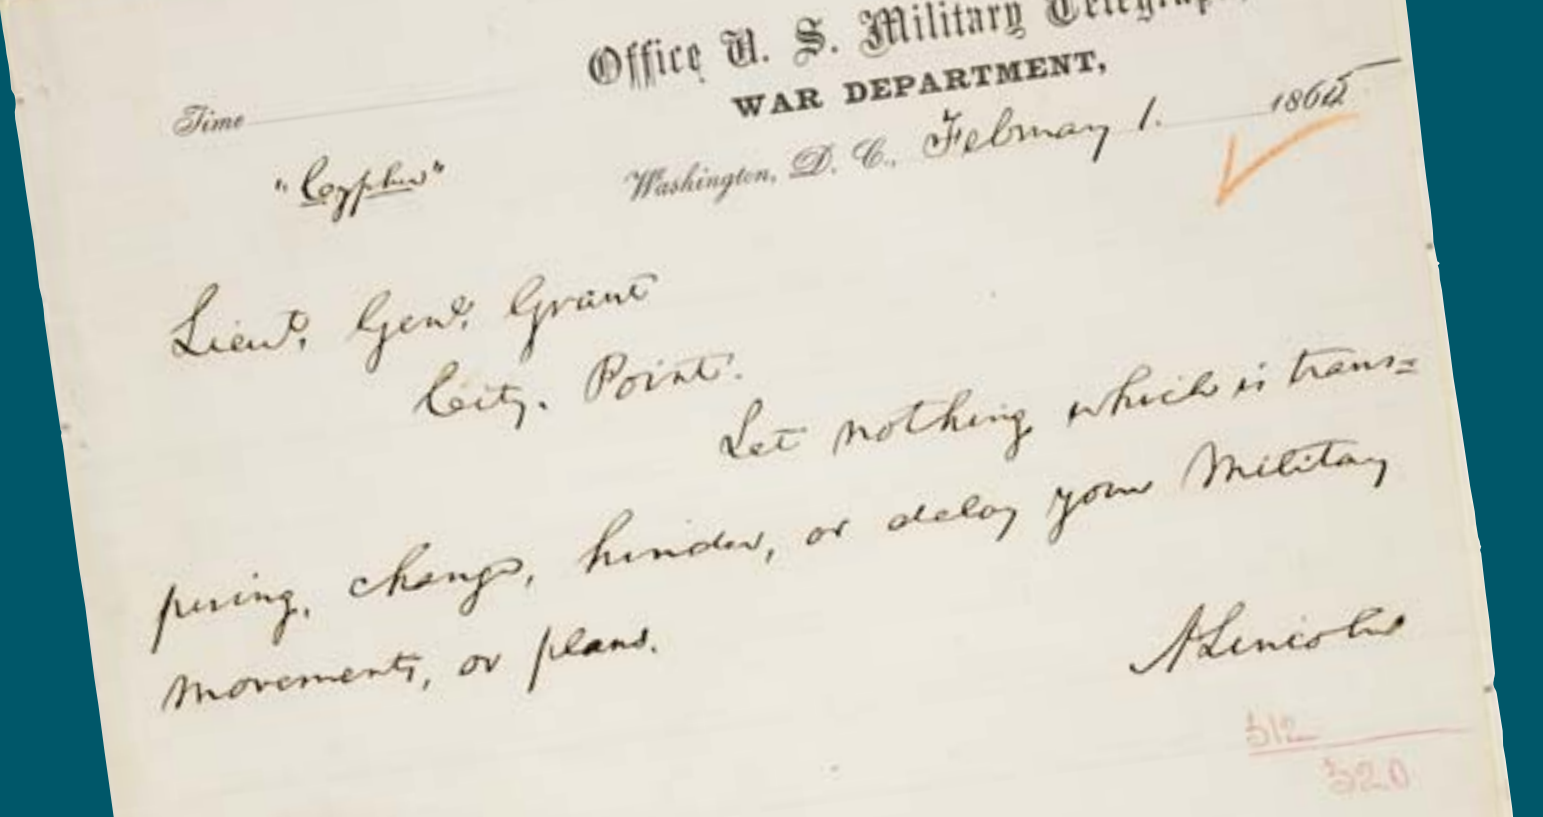 Office U. S. Military Telegraph,
WAR DEPARTMENT,
Time
Washington, D. C., February 1. 1865
"Cypher"
Lieut. Genl. Grant
City. Point.
Let nothing which is trans=
piring, change, hinder, or delay your Military
movements, or plans.
A Lincoln
512
520